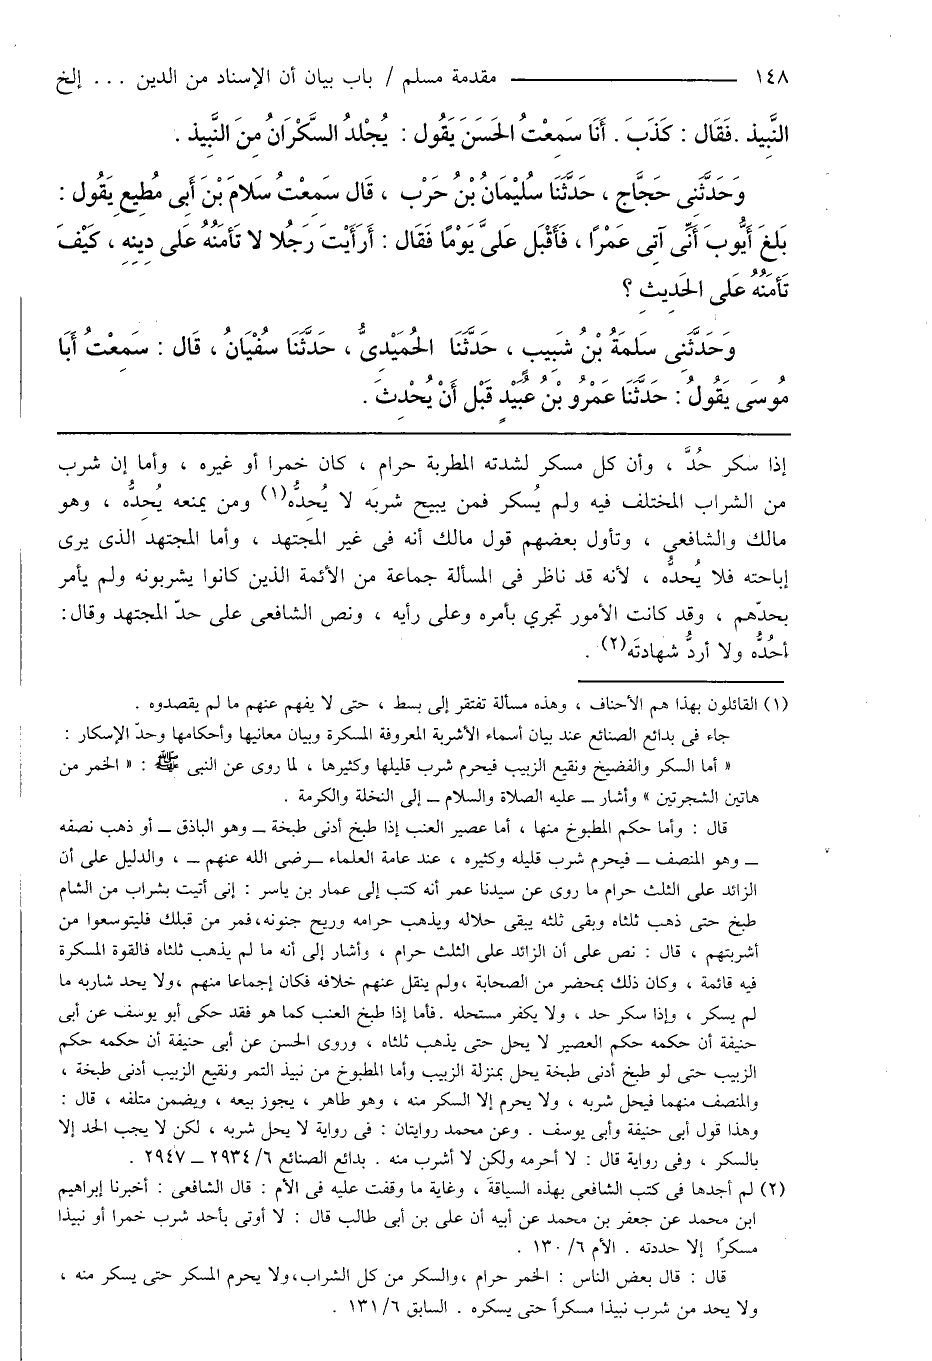 ١٤٨ ــــــــــ مقدمة مسلم / باب بيان أن الإسناد من الدين ... إلخ
النَّبِيذِ . فَقَال : كَذَبَ . أَنَا سَمِعْتُ الحَسَنَ يَقُول : يُجْلدُ السَّكْرَانُ مِنَ النَّبِيذِ .
وَحَدَّثَنِى حَجَّاج ، حَدَّثَنَا سُليْمَانُ بْنُ حَرْب ، قَال سَمِعْتُ سَلامَ بْنَ أَبِى مُطِيعٍ يَقُول :
بَلغَ أَيُّوبَ أَنِّى آتِى عَمْرًا ، فَأَقْبَل عَلىَّ يَوْمًا فَقَال : أَرَأَيْتَ رَجُلا لا تَأمَنُهُ عَلى دِينِهِ ، كَيْفَ
تَأمَنُهُ عَلى الحَدِيثِ ؟
وَحَدَّثَنِى سَلمَةُ بْنُ شَبِيبٍ ، حَدَّثَنَا الحُمَيْدِىُّ ، حَدَّثَنَا سفْيَانُ ، قَال : سَمعْتُ أَبَا
مُوسَى يَقُولُ : حَدَّثَنَا عَمْرُو بْنُ عُبَيْدٍ قَبْل أَنْ يُحْدِثَ .
إذا سكر حُدَّ ، وأن كل مسكر لشدته المطربة حرام ، كان خمرا أو غيره ، وأما إن شرب
من الشراب المختلف فيه ولم يُسكر فمن يبيح شربَه لا يُحِدُّه(١) ومن يمنعه يُحِدُّه ، وهو
مالك والشافعى ، وتأول بعضهم قول مالك أنه فى غير المجتهد ، وأما المجتهد الذى يرى
إباحته فلا يُحدُّه ، لأنه قد ناظر فى المسألة جماعة من الأئمة الذين كانوا يشربونه ولم يأمر
بحدّهم ، وقد كانت الأمور تجري بأمره وعلى رأيه ، ونص الشافعى على حدّ المجتهد وقال :
أحُدُّه ولا أردُّ شهادتَه(٢) .
(١) القائلون بهذا هم الأحناف ، وهذه مسألة تفتقر إلى بسط ، حتى لا يفهم عنهم ما لم يقصدوه .
جاء فى بدائع الصنائع عند بيان أسماء الأشربة المعروفة المسكرة وبيان معانيها وأحكامها وحدّ الإسكار :
« أما السكر والفضيخ ونقيع الزبيب فيحرم شرب قليلها وكثيرها ، لما روى عن النبى ﷺ : « الخمر من
هاتين الشجرتين » وأشار ـ عليه الصلاة والسلام ـ إلى النخلة والكرمة .
قال : وأما حكم المطبوخ منها ، أما عصير العنب إذا طبخ أدنى طبخة ـ وهو الباذق ـ أو ذهب نصفه
ـ وهو المنصف ـ فيحرم شرب قليله وكثيره ، عند عامة العلماء ـ رضى الله عنهم ـ ، والدليل على أن
الزائد على الثلث حرام ما روى عن سيدنا عمر أنه كتب إلى عمار بن ياسر : إنى أتيت بشراب من الشام
طبخ حتى ذهب ثلثاه وبقى ثلثه يبقى حلاله ويذهب حرامه وريح جنونه، فمر من قبلك فليتوسعوا من
أشربتهم ، قال : نص على أن الزائد على الثلث حرام ، وأشار إلى أنه ما لم يذهب ثلثاه فالقوة المسكرة
فيه قائمة ، وكان ذلك بمحضر من الصحابة ، ولم ينقل عنهم خلافه فكان إجماعا منهم ، ولا يحد شاربه ما
لم يسكر ، وإذا سكر حد ، ولا يكفر مستحله . فأما إذا طبخ العنب كما هو فقد حكى أبو يوسف عن أبى
حنيفة أن حكمه حكم العصير لا يحل حتى يذهب ثلثاه ، وروى الحسن عن أبى حنيفة أن حكمه حكم
الزبيب حتى لو طبخ أدنى طبخة يحل بمنزلة الزبيب وأما المطبوخ من نبيذ التمر ونقيع الزبيب أدنى طبخة ،
والمنصف منهما فيحل شربه ، ولا يحرم إلا السكر منه ، وهو طاهر ، يجوز بيعه ، ويضمن متلفه ، قال :
وهذا قول أبى حنيفة وأبى يوسف . وعن محمد روايتان : فى رواية لا يحل شربه ، لكن لا يجب الحد إلا
بالسكر ، وفى رواية قال : لا أحرمه ولكن لا أشرب منه . بدائع الصنائع ٦/ ٢٩٣٤ ـ ٢٩٤٧ .
(٢) لم أجدها فى كتب الشافعى بهذه السياقة ، وغاية ما وقفت عليه فى الأم : قال الشافعى : أخبرنا إبراهيم
ابن محمد عن جعفر بن محمد عن أبيه أن على بن أبى طالب قال : لا أوتى بأحد شرب خمرا أو نبيذا
مسكرًا إلا حددته . الأم ٦/ ١٣٠ .
قال : قال بعض الناس : الخمر حرام ، والسكر من كل الشراب، ولا يحرم المسكر حتى يسكر منه ،
ولا يحد من شرب نبيذا مسكراً حتى يسكره . السابق ٦/ ١٣١ .